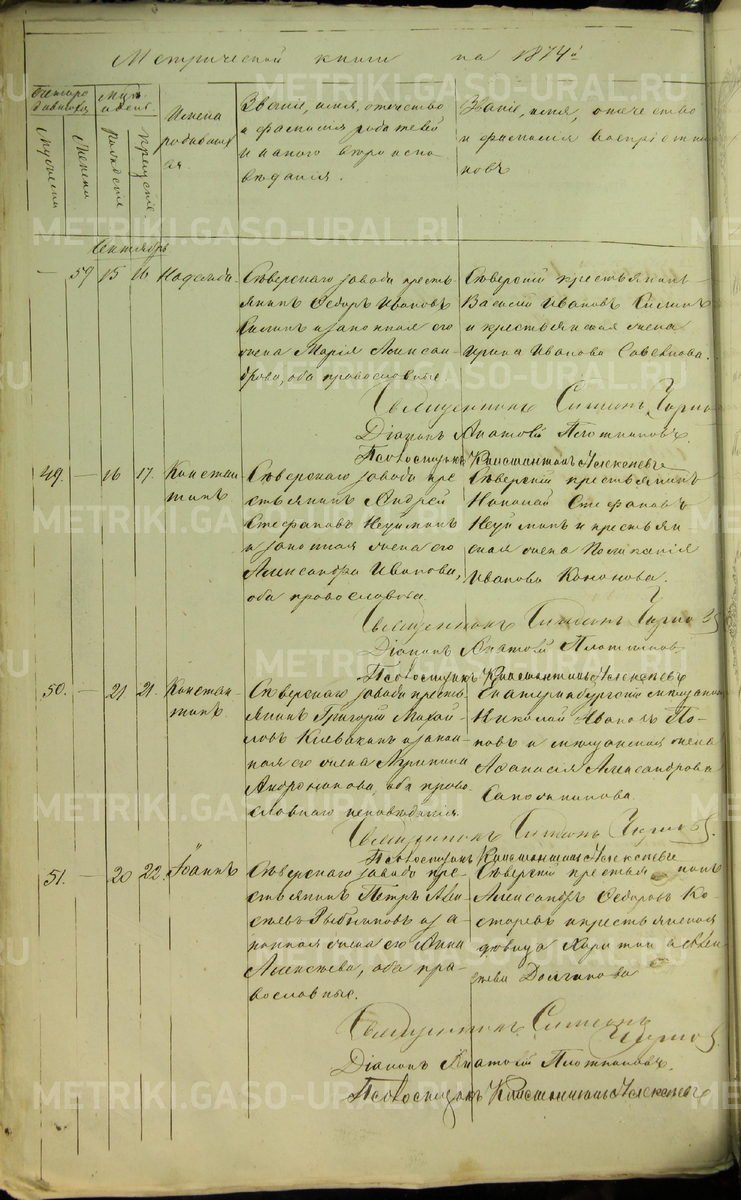 Метрической книги на 1874й
Счетъ родившихся
Мужеска
Женска
Мѣс. и день
Рожденія
Крещенія
Имена родившихся.
Званіе, имя, отчество
и фамилія родителей
и какого вѣроиспо-
вѣданія.
Званіе, имя, отчество
и фамилія воспріемни-
ковъ
Сентябрь
— 59 15 16 Надежда
Сѣверскаго завода кресть-
янинъ Ѳедоръ Ивановъ
Силинъ и законная его
жена Марія Алексан-
дрова, оба православные.
Сѣверскій крестьянинъ
Василій Ивановъ Силинъ
и крестьянская жена
Ирина Иванова Савельова.
Священникъ Симеонъ
Діаконъ Игнатій Плотниковъ.
Псаломщикъ Константинъ Алексеевъ
49. — 16 17. Констан-
тинъ
Сѣверскаго завода кре-
стьянинъ Андрей
Стефановъ Неуйминъ
и законная жена его
Александра Иванова,
оба православна
Сѣверскій крестьянинъ
Николай Стефановъ
Неуйминъ и крестьян-
ская жена
Иванова Кононова.
Священникъ Симеонъ
Діаконъ Игнатій Плотниковъ
Псаломщикъ Константинъ Алексеевъ
50. — 21 21. Констан-
тинъ.
Сѣверскаго завода кресть-
янинъ Григорій Михай-
ловъ Клевакинъ и закон-
ная его жена Агрипина
Андроникова, оба право-
славнаго исповѣданія.
Екатеринбургскій мѣщанинъ
Николай Ивановъ По-
повъ и мѣщанская жена
Аѳанасія Александрова
Сапожникова.
Священникъ Симеонъ
Псаломщикъ Константинъ Алексеевъ
51. — 20 22. Іоаннъ
Сѣверскаго завода кре-
стьянинъ Петръ Алек-
сѣевъ Рыбниковъ и за-
конная жена его Анна
Алексѣева, оба пра-
вославные.
Сѣверскій крестьянинъ
Александръ Ѳедоровъ Ко-
старевъ и крестьянская
вдовица Харитина Алек-
сѣева Долганова
Священникъ Симеонъ
Діаконъ Игнатій Плотниковъ.
Псаломщикъ Константинъ Алексеевъ
METRIKI.GASO-URAL.RU